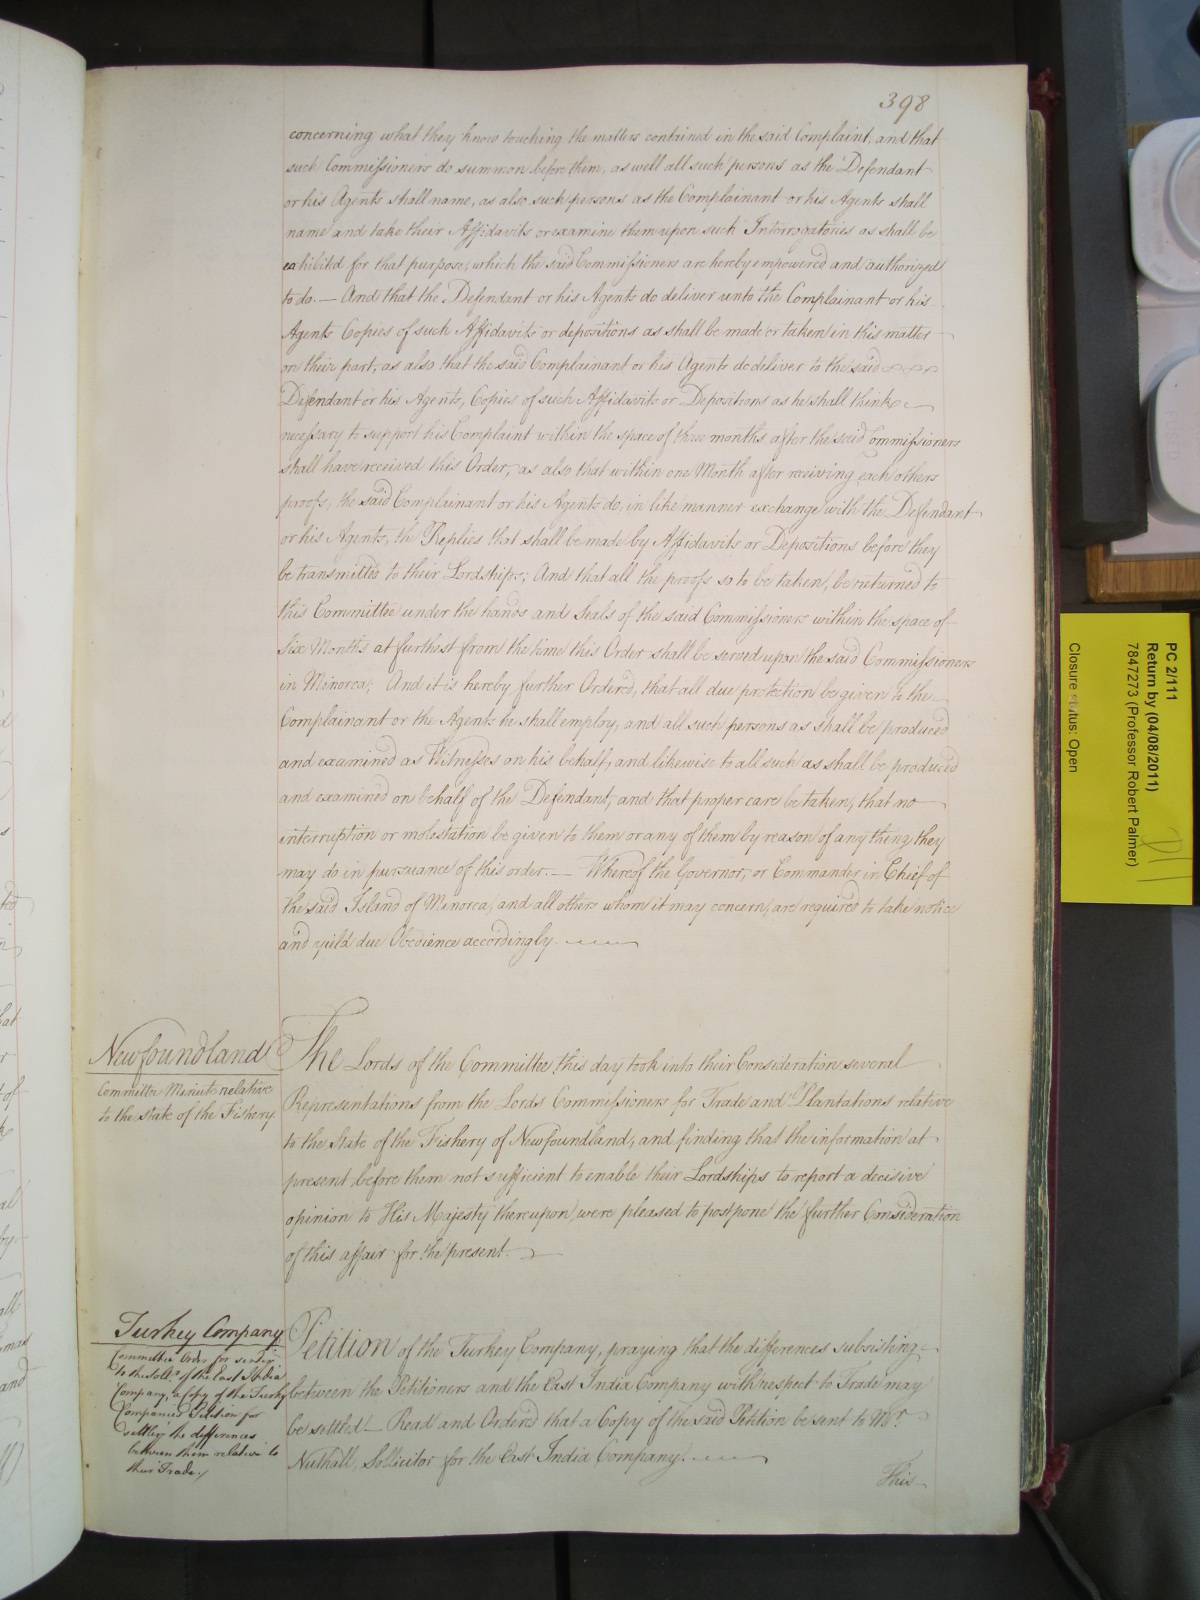 398
concerning what they know touching the matters contained in the said Complaint, and that
such Commissioners do summon before them, as well all such persons as the Defendant
or his Agents shall name, as also such persons as the Complainant or his Agents shall
name and take their Affidavits or examine them upon such Interrogatories as shall be
exhibited for that purpose, which the said Commissioners are hereby empowered and authorized
to do. — And that the Defendant or his Agents do deliver unto the Complainant or his
Agents Copies of such Affidavits or depositions as shall be made or taken in this matter
on their part, as also that the said Complainant or his Agents do deliver to the said
Defendant or his Agents, Copies of such Affidavits or Depositions as he shall think
necessary to support his Complaint within the space of three months after the said Commissioners
shall have received this Order, as also that within one Month after receiving each others
proofs, the said Complainant or his Agents do, in like manner exchange with the Defendant
or his Agents, the Replies that shall be made by Affidavits or Depositions before they
be transmitted to their Lordships; And that all the proofs so to be taken, be returned to
this Committee under the hands and Seals of the said Commissioners within the space of
Six Months at furthest from the time this Order shall be served upon the said Commissioners
in Minorca; And it is hereby further Ordered, that all due protection be given to the
Complainant or the Agents he shall employ, and all such persons as shall be produced
and examined as Witnesses on his behalf, and likewise to all such as shall be produced
and examined on behalf of the Defendant, and that proper care be taken, that no
interruption or molestation be given to them or any of them by reason of any thing they
may do in pursuance of this order. — Whereof the Governor, or Commander in Chief of
the said Island of Minorca, and all others whom it may concern, are required to take notice
and yield due Obedience accordingly.
Newfoundland
Committee Minute relative
to the State of the Fishery
The Lords of the Committee this day took into their Consideration several
Representations from the Lords Commissioners for Trade and Plantations relative
to the State of the Fishery of Newfoundland, and finding that the information at
present before them not sufficient to enable their Lordships to report a decisive
opinion to His Majesty thereupon, were pleased to postpone the further Consideration
of this affair for the present.
Turkey Company
Committee Order for sending
to the Sollr. of the East India
Company, a Copy of the Turky
Companies Petition for
settling the differences
between them relative to
their Trade.
Petition of the Turkey Company, praying that the differences subsisting
between the Petitioners and the East India Company with respect to Trade may
be settled — Read and Ordered that a Copy of the said Petition be sent to Mr.
Nuthall, Sollicitor for the East India Company.
This
PC 2/111
Return by (04/08/2011)
7847273 (Professor Robert Palmer)
Closure status: Open